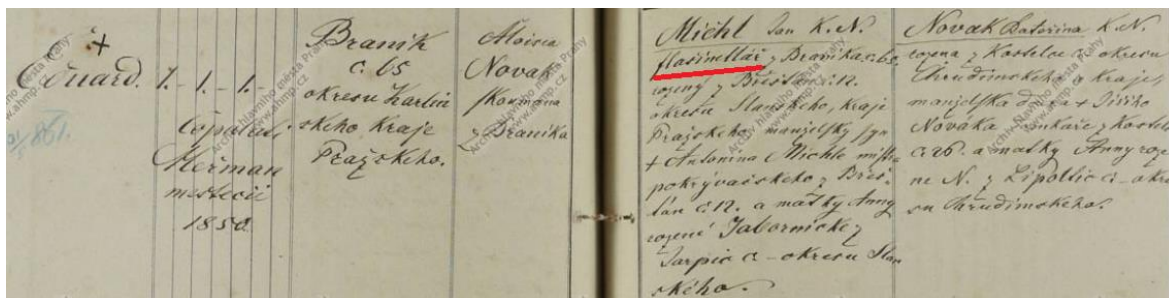 +
Eduard. 1. - 1. - 1. -
Copulati
Heřman
mestecii
1850.
Braník
č. 65
okresu Karlin
ského, Kraje
Pražského.
Aloisia
Novak
z Branika
Michl Jan K. N.
flašinetlář z Branika č. 60
rozený z Břešťan č. 12.
okresu Slanského, kraje
Pražského, manželský syn
+ Antonina Michle
pokrývačského z Břeš-
ťan č. 12. a matky Anny
rozené Jabornické z
Jarpic č - okresu Slan
ského.
Novak Kateřina K. N.
rozena z Kostelce č. okresu
Chrudimského a kraje,
manželská dcera + Jiřího
Nováka z Kostel
č. 26. a matky Anny roze
né N. z Lipoltic č - okre
su Chrudimského.
Archiv hlavního města Prahy
www.ahmp.cz